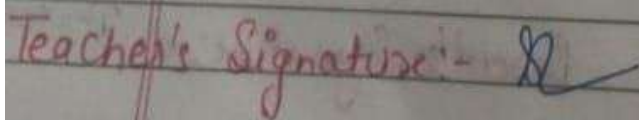 Teacher's Signature:-